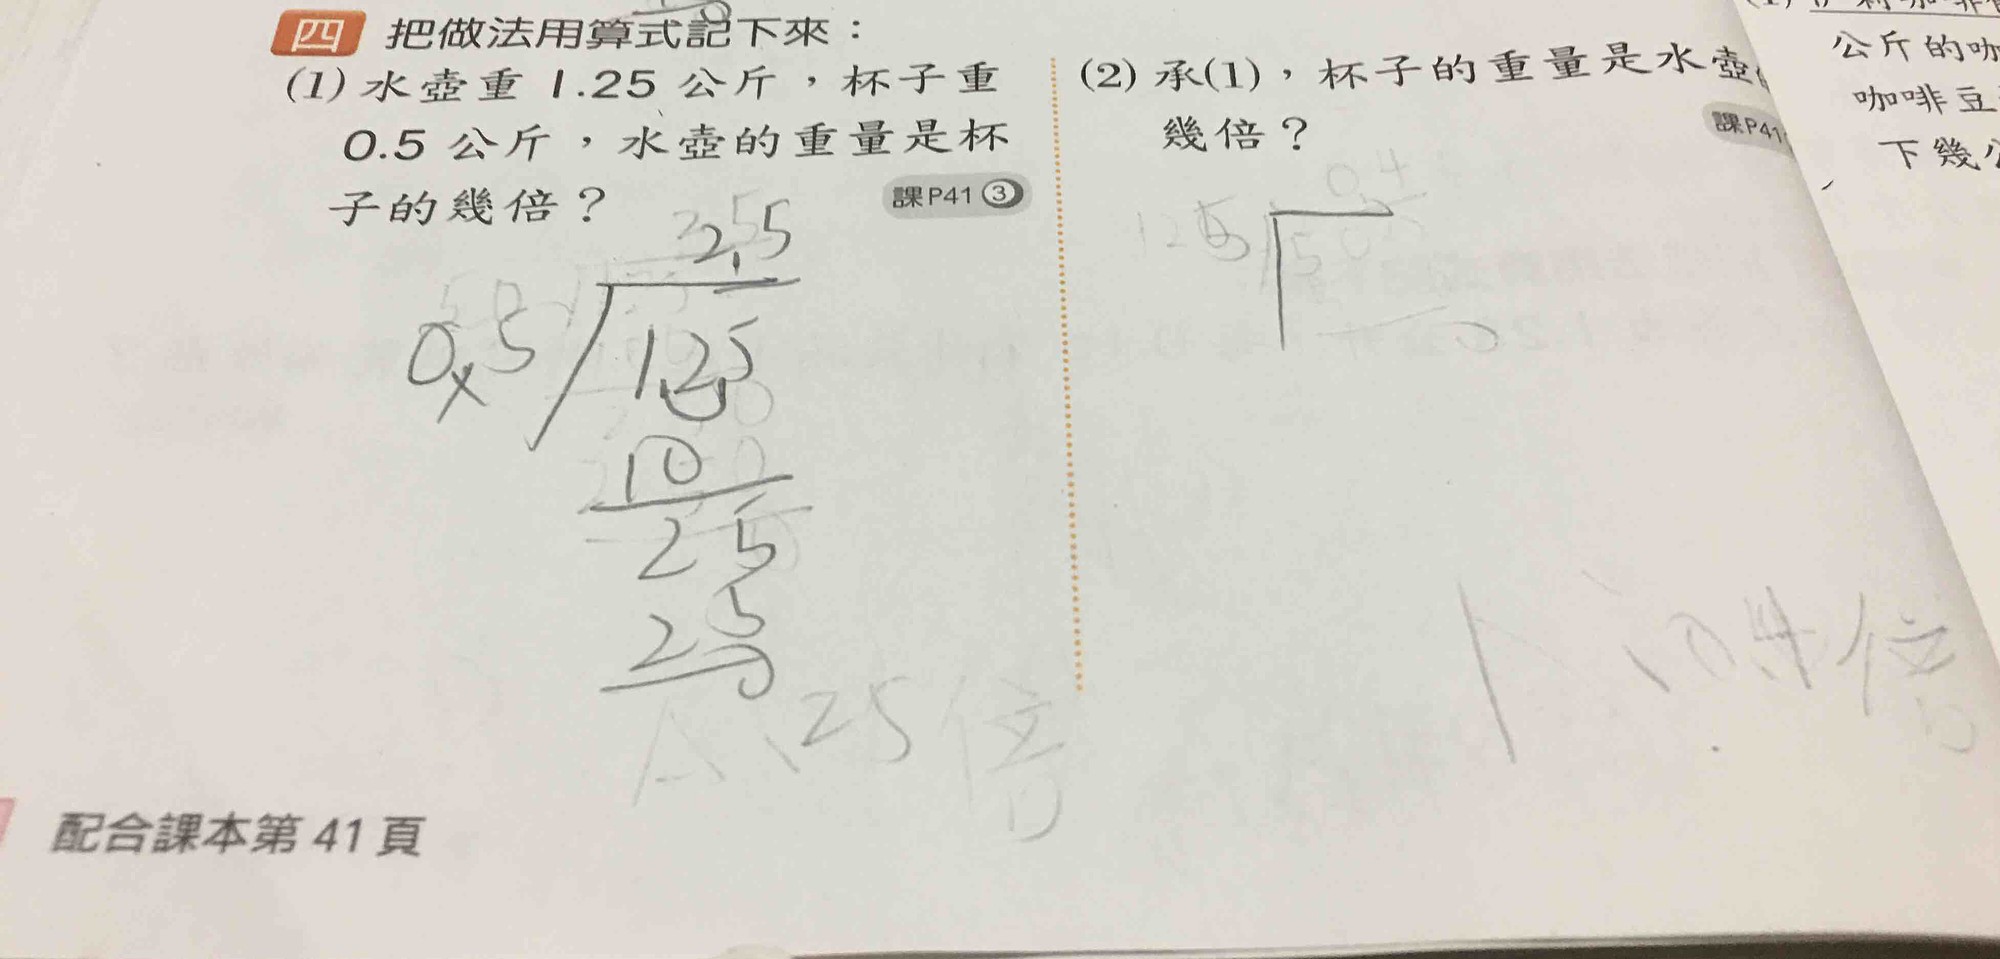 四 把做法用算式記下來：
(1) 水壺重 1.25 公斤，杯子重
0.5 公斤，水壺的重量是杯
子的幾倍？
課P41 ③
2.5
0.5 1.25
10
25
25
0
25倍
(2) 承(1)，杯子的重量是水壺
幾倍？
課P41
0.4
125 50
0
0.4倍
公斤的咖
咖啡豆
下幾
配合課本第 41 頁